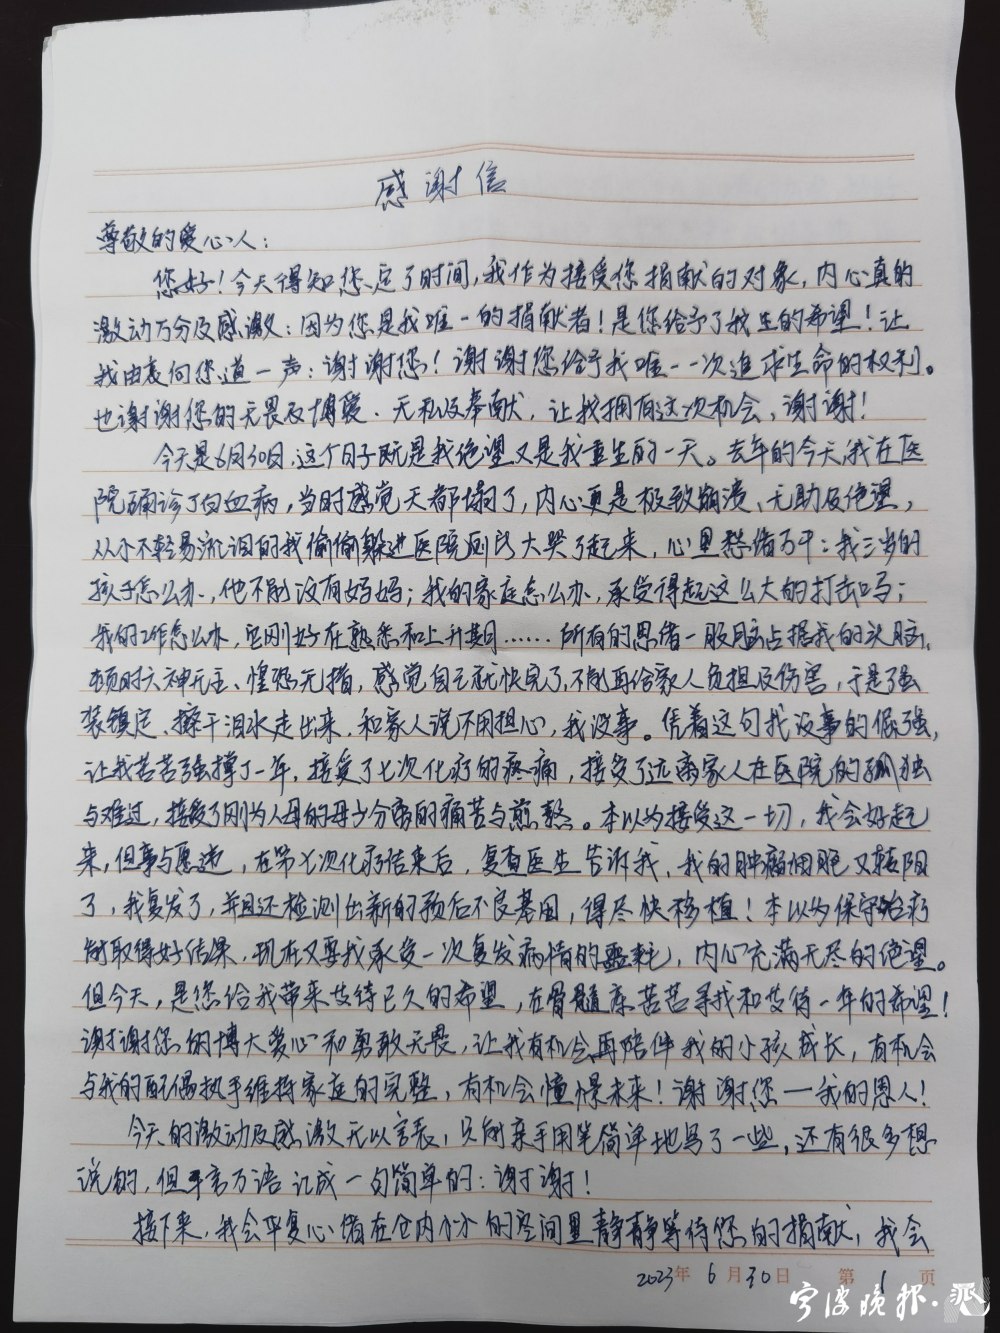 感谢信
尊敬的爱心人：
您好！今天得知您定了时间，我作为接受您捐献的对象，内心真的
激动万分及感激：因为您是我唯一的捐献者！是您给予了我生的希望！让
我由衷向您道一声：谢谢您！谢谢您给予我唯一一次追求生命的权利。
也谢谢您的无畏及博爱、无私及奉献，让我拥有这次机会，谢谢！
今天是6月30日，这个日子既是我绝望又是我重生的一天。去年的今天，我在医
院确诊了白血病，当时感觉天都塌了，内心更是极致崩溃、无助及绝望，
从小不轻易流泪的我偷偷躲进医院厕所大哭了起来，心里愁绪万千：我三岁的
孩子怎么办，他不能没有妈妈；我的家庭怎么办，承受得起这么大的打击吗；
我的工作怎么办，它刚好在熟悉和上升期……所有的思绪一股脑占据我的头脑，
顿时六神无主、惶恐无措，感觉自己就快完了，不能再给家人负担及伤害，于是强
装镇定、擦干泪水走出来，和家人说不用担心，我没事。凭着这句我没事的倔强，
让我苦苦强撑了一年，接受了七次化疗的疼痛，接受了远离家人在医院的孤独
与难过，接受了刚为人母的母子分离的痛苦与煎熬。本以为接受这一切，我会好起
来，但事与愿违，在第七次化疗结束后，复查医生告诉我，我的肿瘤细胞又转阳
了，我复发了，并且还检测出新的预后不良基因，得尽快移植！本以为保守治疗
能取得好结果，现在又要我承受一次复发病情的噩耗，内心充满无尽的绝望。
但今天，是您给我带来期待已久的希望，在骨髓库苦苦寻找和期待一年的希望！
谢谢您的博大爱心和勇敢无畏，让我有机会再陪伴我的小孩成长，有机会
与我的配偶执手维持家庭的完整，有机会憧憬未来！谢谢您——我的恩人！
今天的激动及感激无以言表，只能亲手用笔简单地写了一些，还有很多想
说的，但千言万语汇成一句简单的：谢谢！
接下来，我会平复心绪在仓内小小的空间里静静等待您的捐献，我会
2023年6月30日 第1页
宁波晚报·派